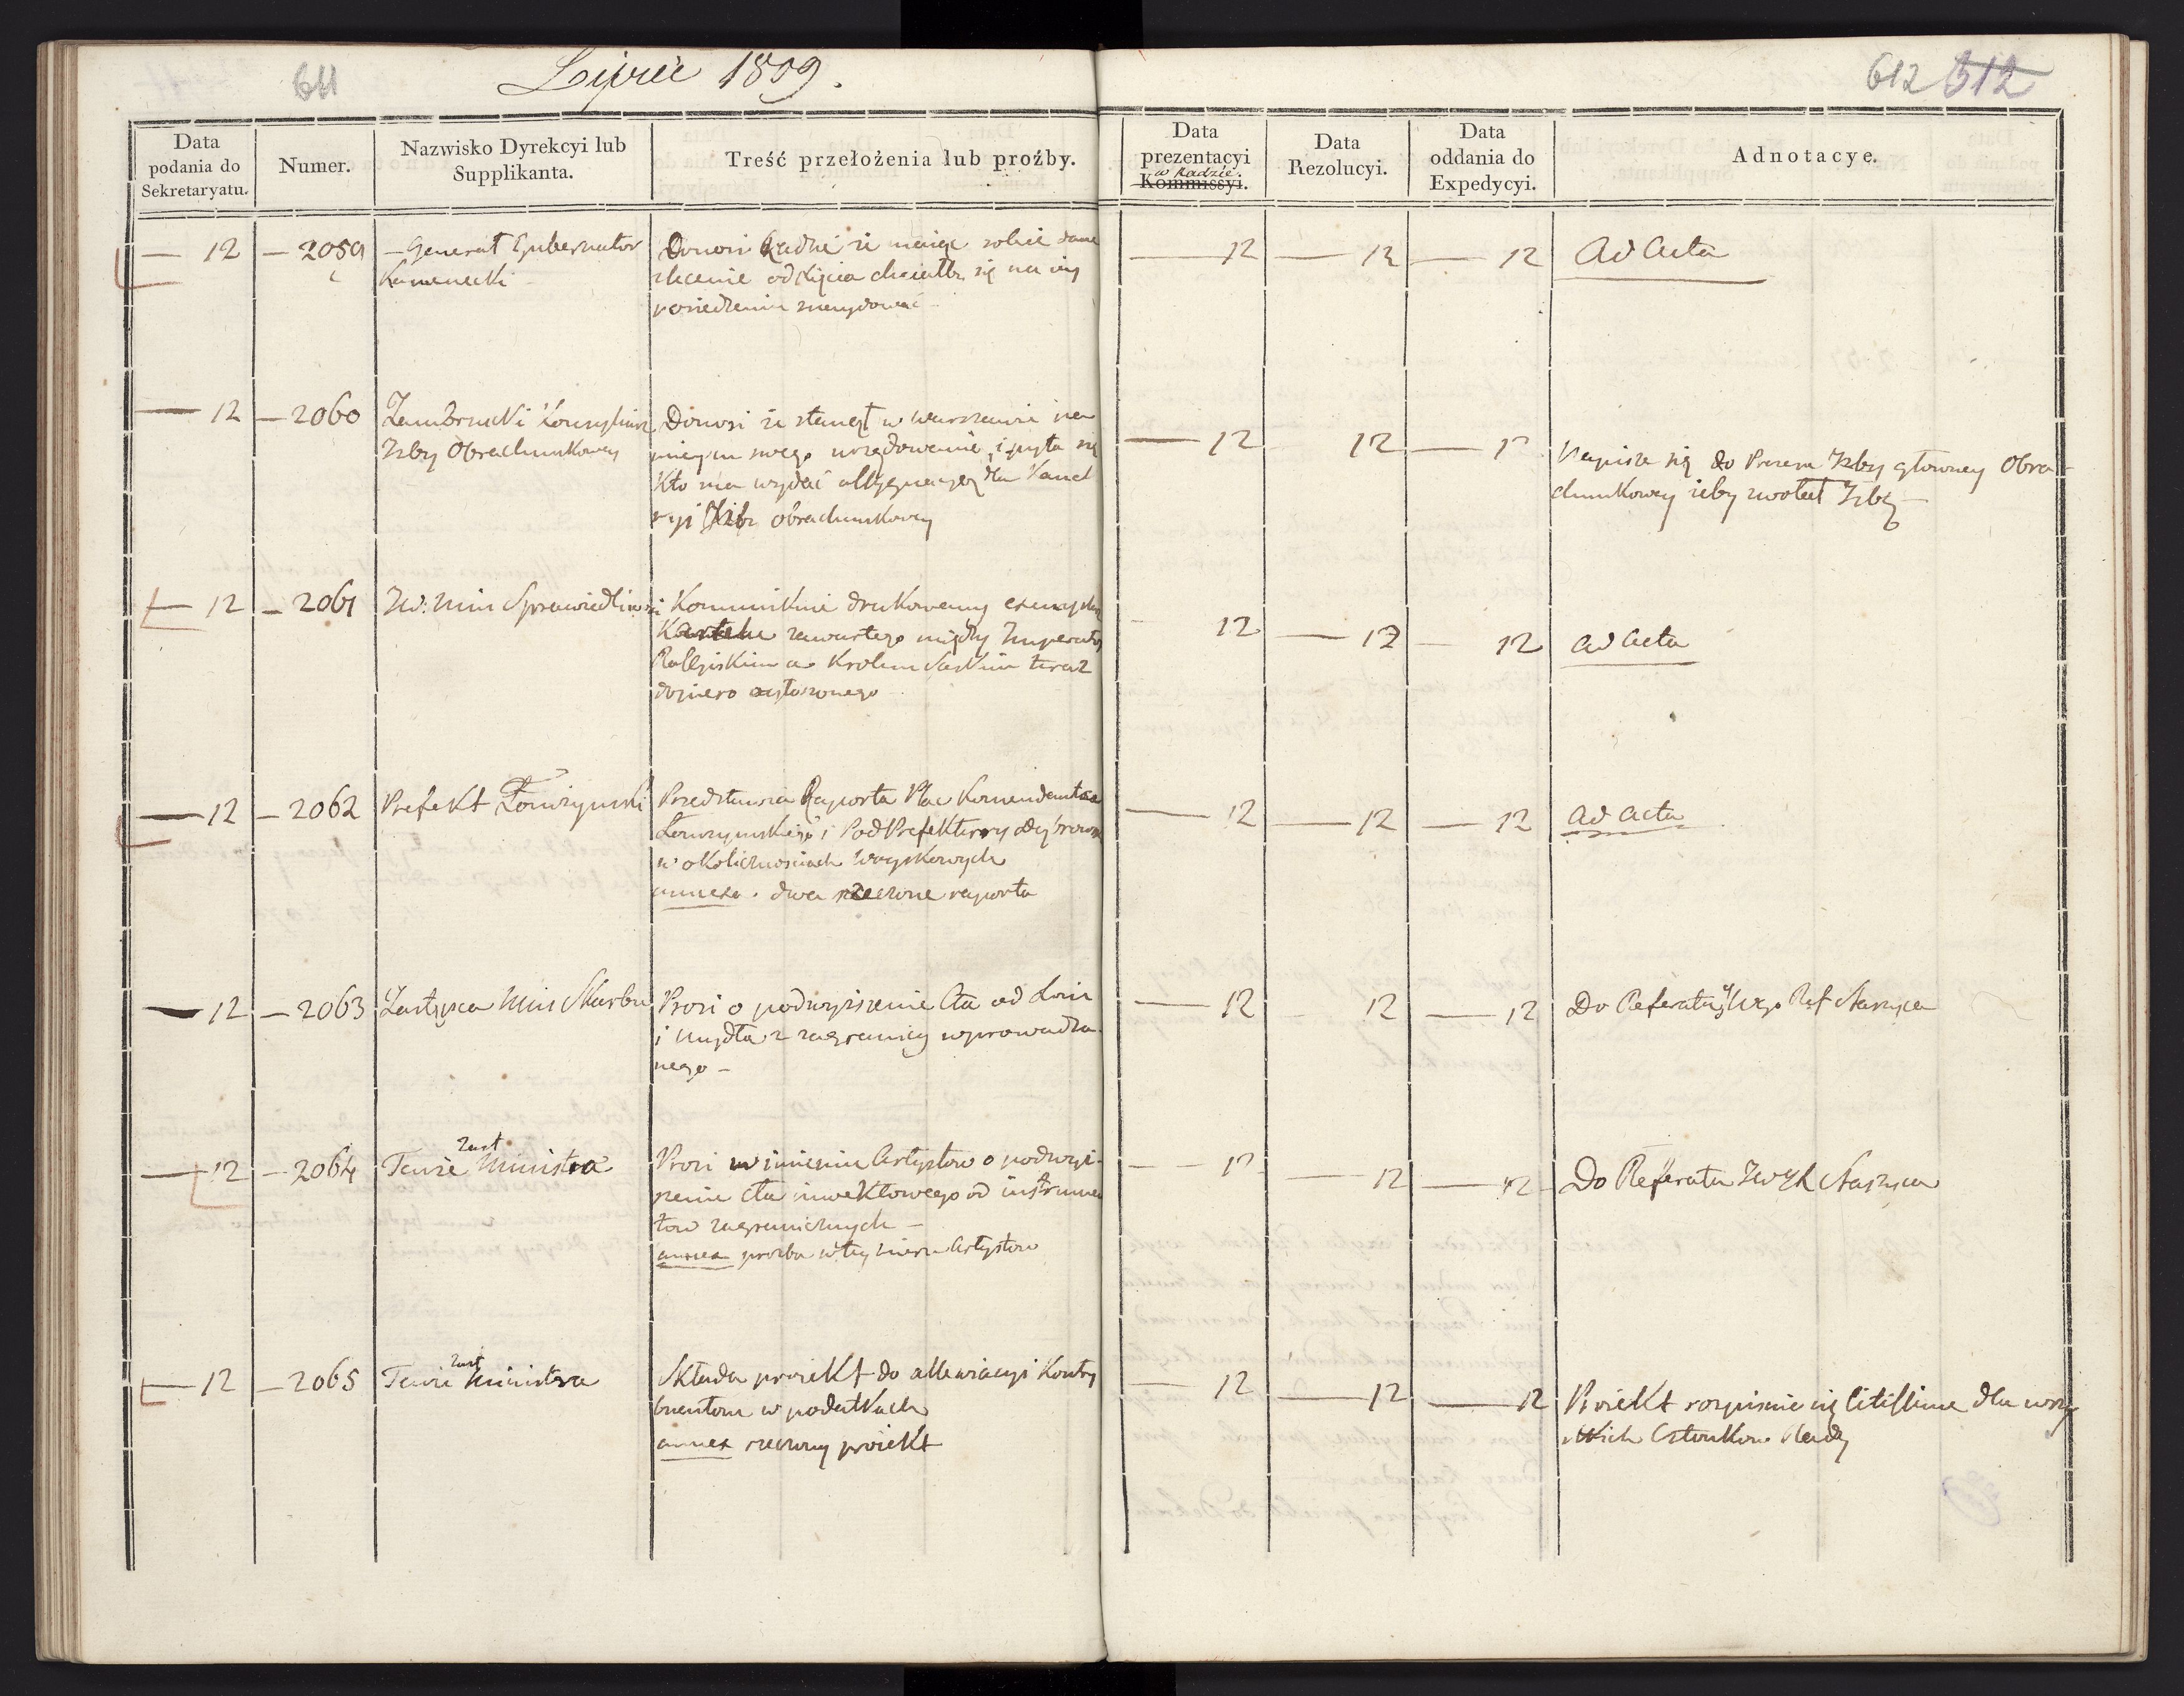 611
Lipiec 1809.
612 512
Data podania do Sekretaryatu.
Numer.
Nazwisko Dyrekcyi lub Supplikanta.
Treść przełożenia lub proźby.
Data prezentacyi w Radzie. Kommissyi.
Data Rezolucyi.
Data oddania do Expedycyi.
Adnotacye.
— 12 — 2059 — Generał Gubernator
Kamenecki —
Donosi Radzie że maiąc sobie dane
zlecenie od Xięcia chciałby się na iey
posiedzeniu znaydować —
— 12 — 12 — 12 Ad Acta
— 12 — 2060 Zambrzucki Konsyliarz
Izby Obrachunkowey
Donosi że stanął w Warszawie na
swego urzędowanie, i pyta się
Kto ma wydać assygnacyą dla Kancel
ryi Izby obrachunkowey
— 12 12 — 12 Napisze się do Prezesa Izby głowney Obra-
chunkowey żeby zwołał Izbę —
— 12 — 2061 JW. Min Sprawiedliwości
Kommunikuie drukowany exemplarz
Kartelu zawartego między Imperatorem
Rossyiskim a Krolem Saskim teraz
dopiero ogłoszonego
12 — 12 — 12 Ad Acta
— 12 — 2062 Prefekt Łomżynski
Przedstawia Raporta Plac Komendanta
Łomżynskiego i PodPrefektury
w okolicznosciach Woyskowych
annexa . dwa rzeczone raporta
— 12 — 12 — 12 Ad Acta
— 12 — 2063 Zastępca Min Skarbu
Prosi o podwyższenie Cła od Łoiu
i mydła z zagranicy wprowadza-
nego —
— 12 12 — 12 Do Referatu JWgo Ref Staszyca
— 12 — 2064 Tenże Zast Ministra
Prosi w imieniu Artystow o podwyż-
szenie cła inwektowego od instrumen
tow zagranicznych —
annexa prozba w tey mierze Artystow
— 12 — 12 — 12 Do Referatu JW Staszyca
— 12 — 2065 Tenże Zast Ministra
Składa proiekt do allewiacyi Kontry
buentom w podatkach
annex rzeczony proiekt
— 12 — 12 — 12 Proiekt rozpisuie się citissime dla wszy
stkich Członkow Rady